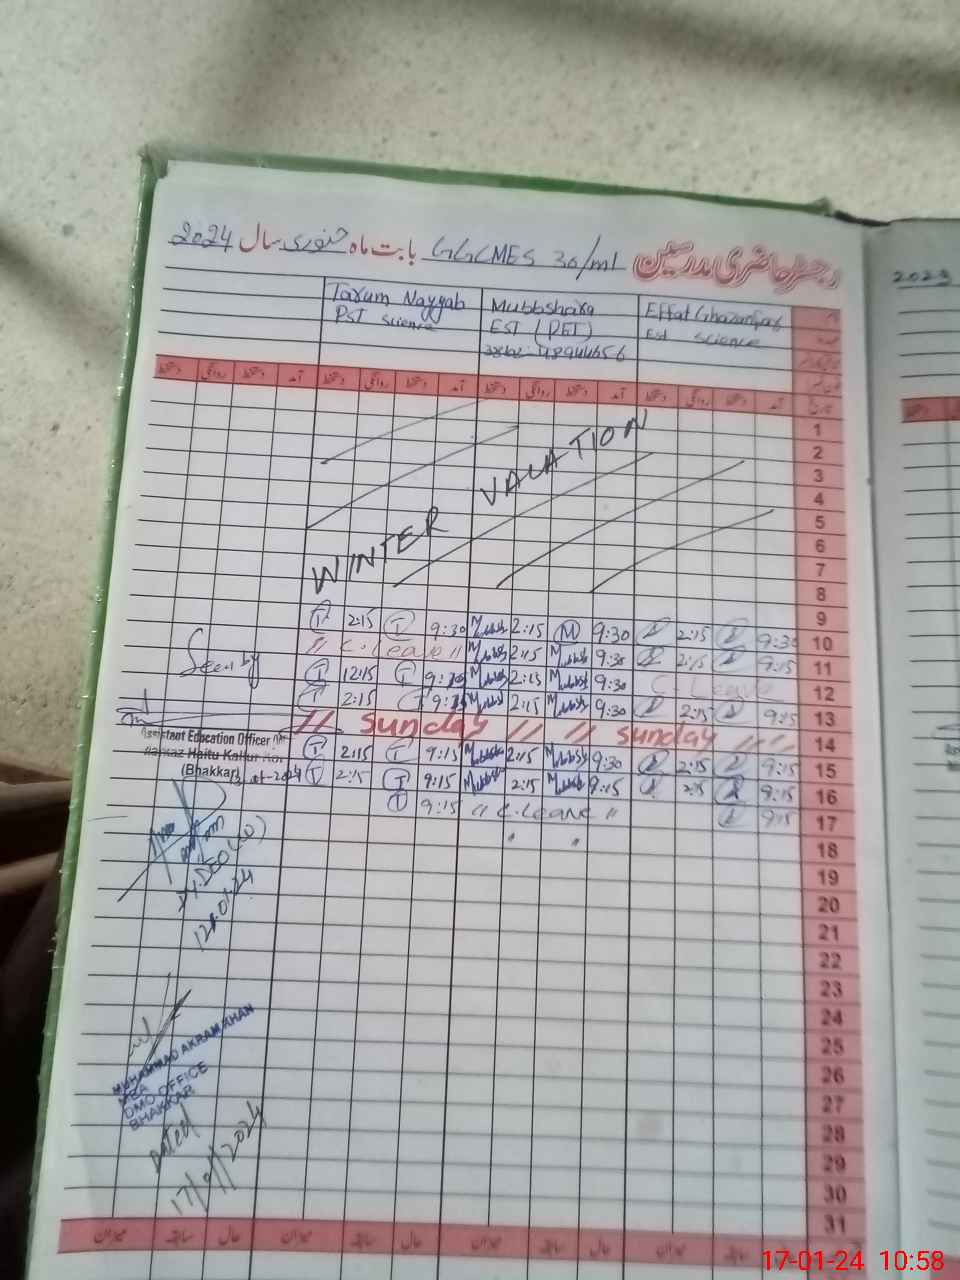 رجسٹر حاضری مدرسین GGCMES 30/ml بابت ماہ جنوری سال 2024
2023
Tarum Nayyab Mubbshara Effat Ghazanfar
PST science EST (PET) Est science
روانگی دستخط آمد دستخط روانگی دستخط آمد دستخط روانگی دستخط آمد تاریخ
1
2
3
4
5
6
7
8
WINTER VACATION
T 2:15 T 9:30 Mubbsh 2:15 M 9:30 2:15 9:30 9
10
" C. Leave " Mubbsh 2:15 Mubbsh 9:30 2:15 9:15 11
T 12:15 T 9:15 Mubbsh 2:15 Mubbsh 9:30 C. Leave 12
2:15 9:15 Mubbsh 2:15 Mubbsh 9:30 2:15 9:15 13
" sunday " " sunday " " 14
T 2:15 T 9:15 Mubbsh 2:15 Mubbsh 9:30 2:15 9:15 15
T 2:15 T 9:15 Mubbsh 2:15 Mubbsh 9:15 2:15 9:15 16
T 9:15 " C. Leave " 9:15 17
18
19
20
21
22
23
24
25
26
27
28
29
30
31
Seen by
Assistant Education Officer
Markaz Haitu Kallur Kot
(Bhakkar)
Dy. DEO
12.01.24
MUHAMMAD AKRAM KHAN
MEA
DMO OFFICE
BHAKKAR
Dated
17/01/2024
میزان سابقہ حال میزان سابقہ حال میزان سابقہ حال میزان سابقہ حال
17-01-24 10:58